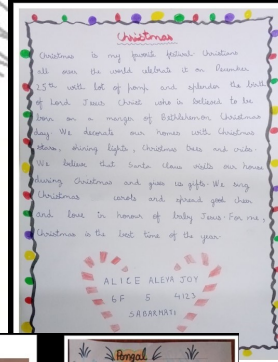 Christmas
Christmas is my favorit festival. Christians
all over the world celebrate it on December
25th with lot of pomp and splendor the birth
of Lord Jesus Christ who is believed to be
born on a manger of Bethlehem on Christmas
day. We decorate our homes with Christmas
stars, shining lights, Christmas trees and cribs.
We believe that Santa Claus visits our house
during Christmas and gives us gifts. We sing
Christmas carols and spread good cheer
and love in honour of baby Jesus. For me,
Christmas is the best time of the year.
ALICE ALEYA JOY
6F 5 4123
SABARMATI
Pongal